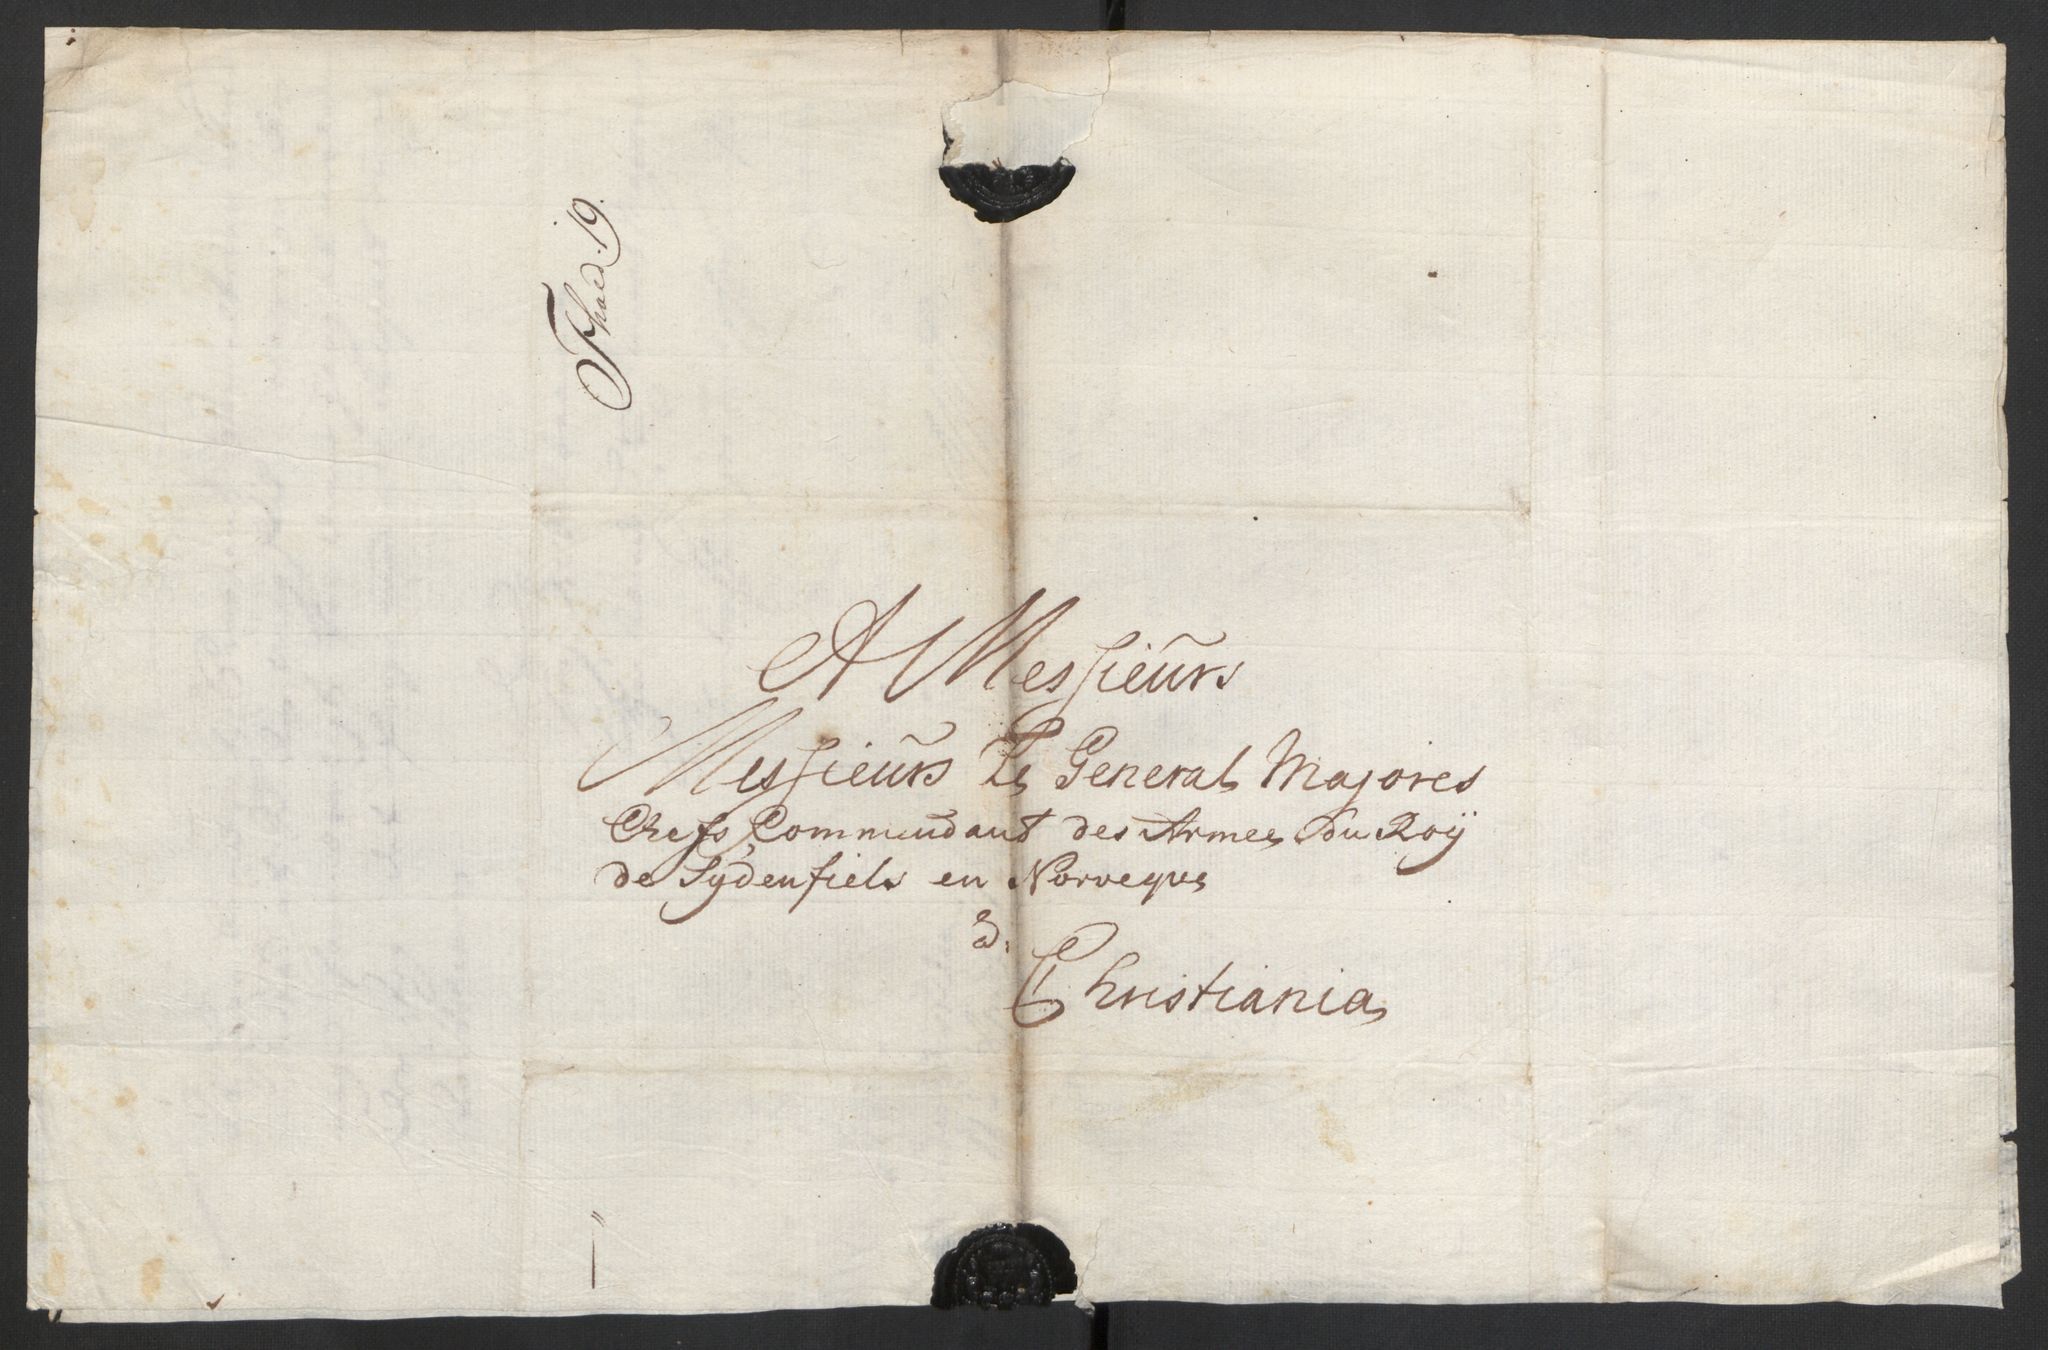 A Messieūrs
Messieūrs Le General Majores
Chefs Commendant des Armee du Roÿ
de Sydenfiels en Norvegve
à
Christiania
19.